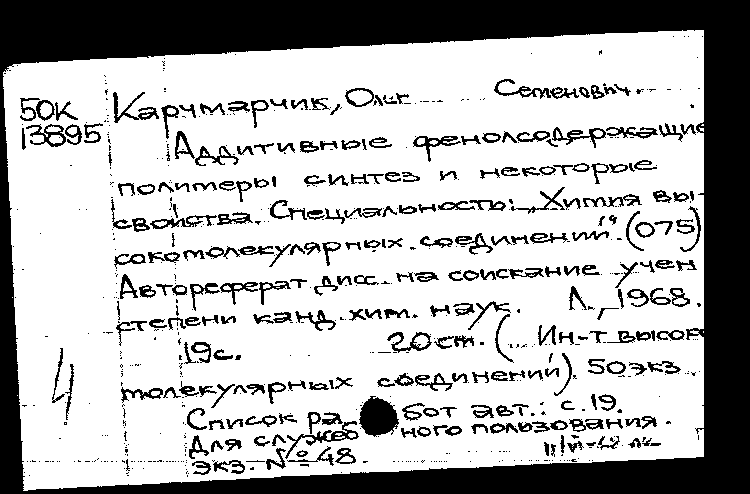 50К
13895
Карчмарчик, Олег Семенович.
Аддитивные фенолсодержащие
полимеры синтез и некоторые
свойства. Специальность: „Химия вы-
сокомолекулярных соединений". (075)
Автореферат дисс. на соискание учен
степени канд. хим. наук. Л., 1968.
19с. 20см. (Ин-т высоко
молекулярных соединений). 50экз
Список работ авт.: с.19.
Для служебного пользования.
экз. № 48.
4